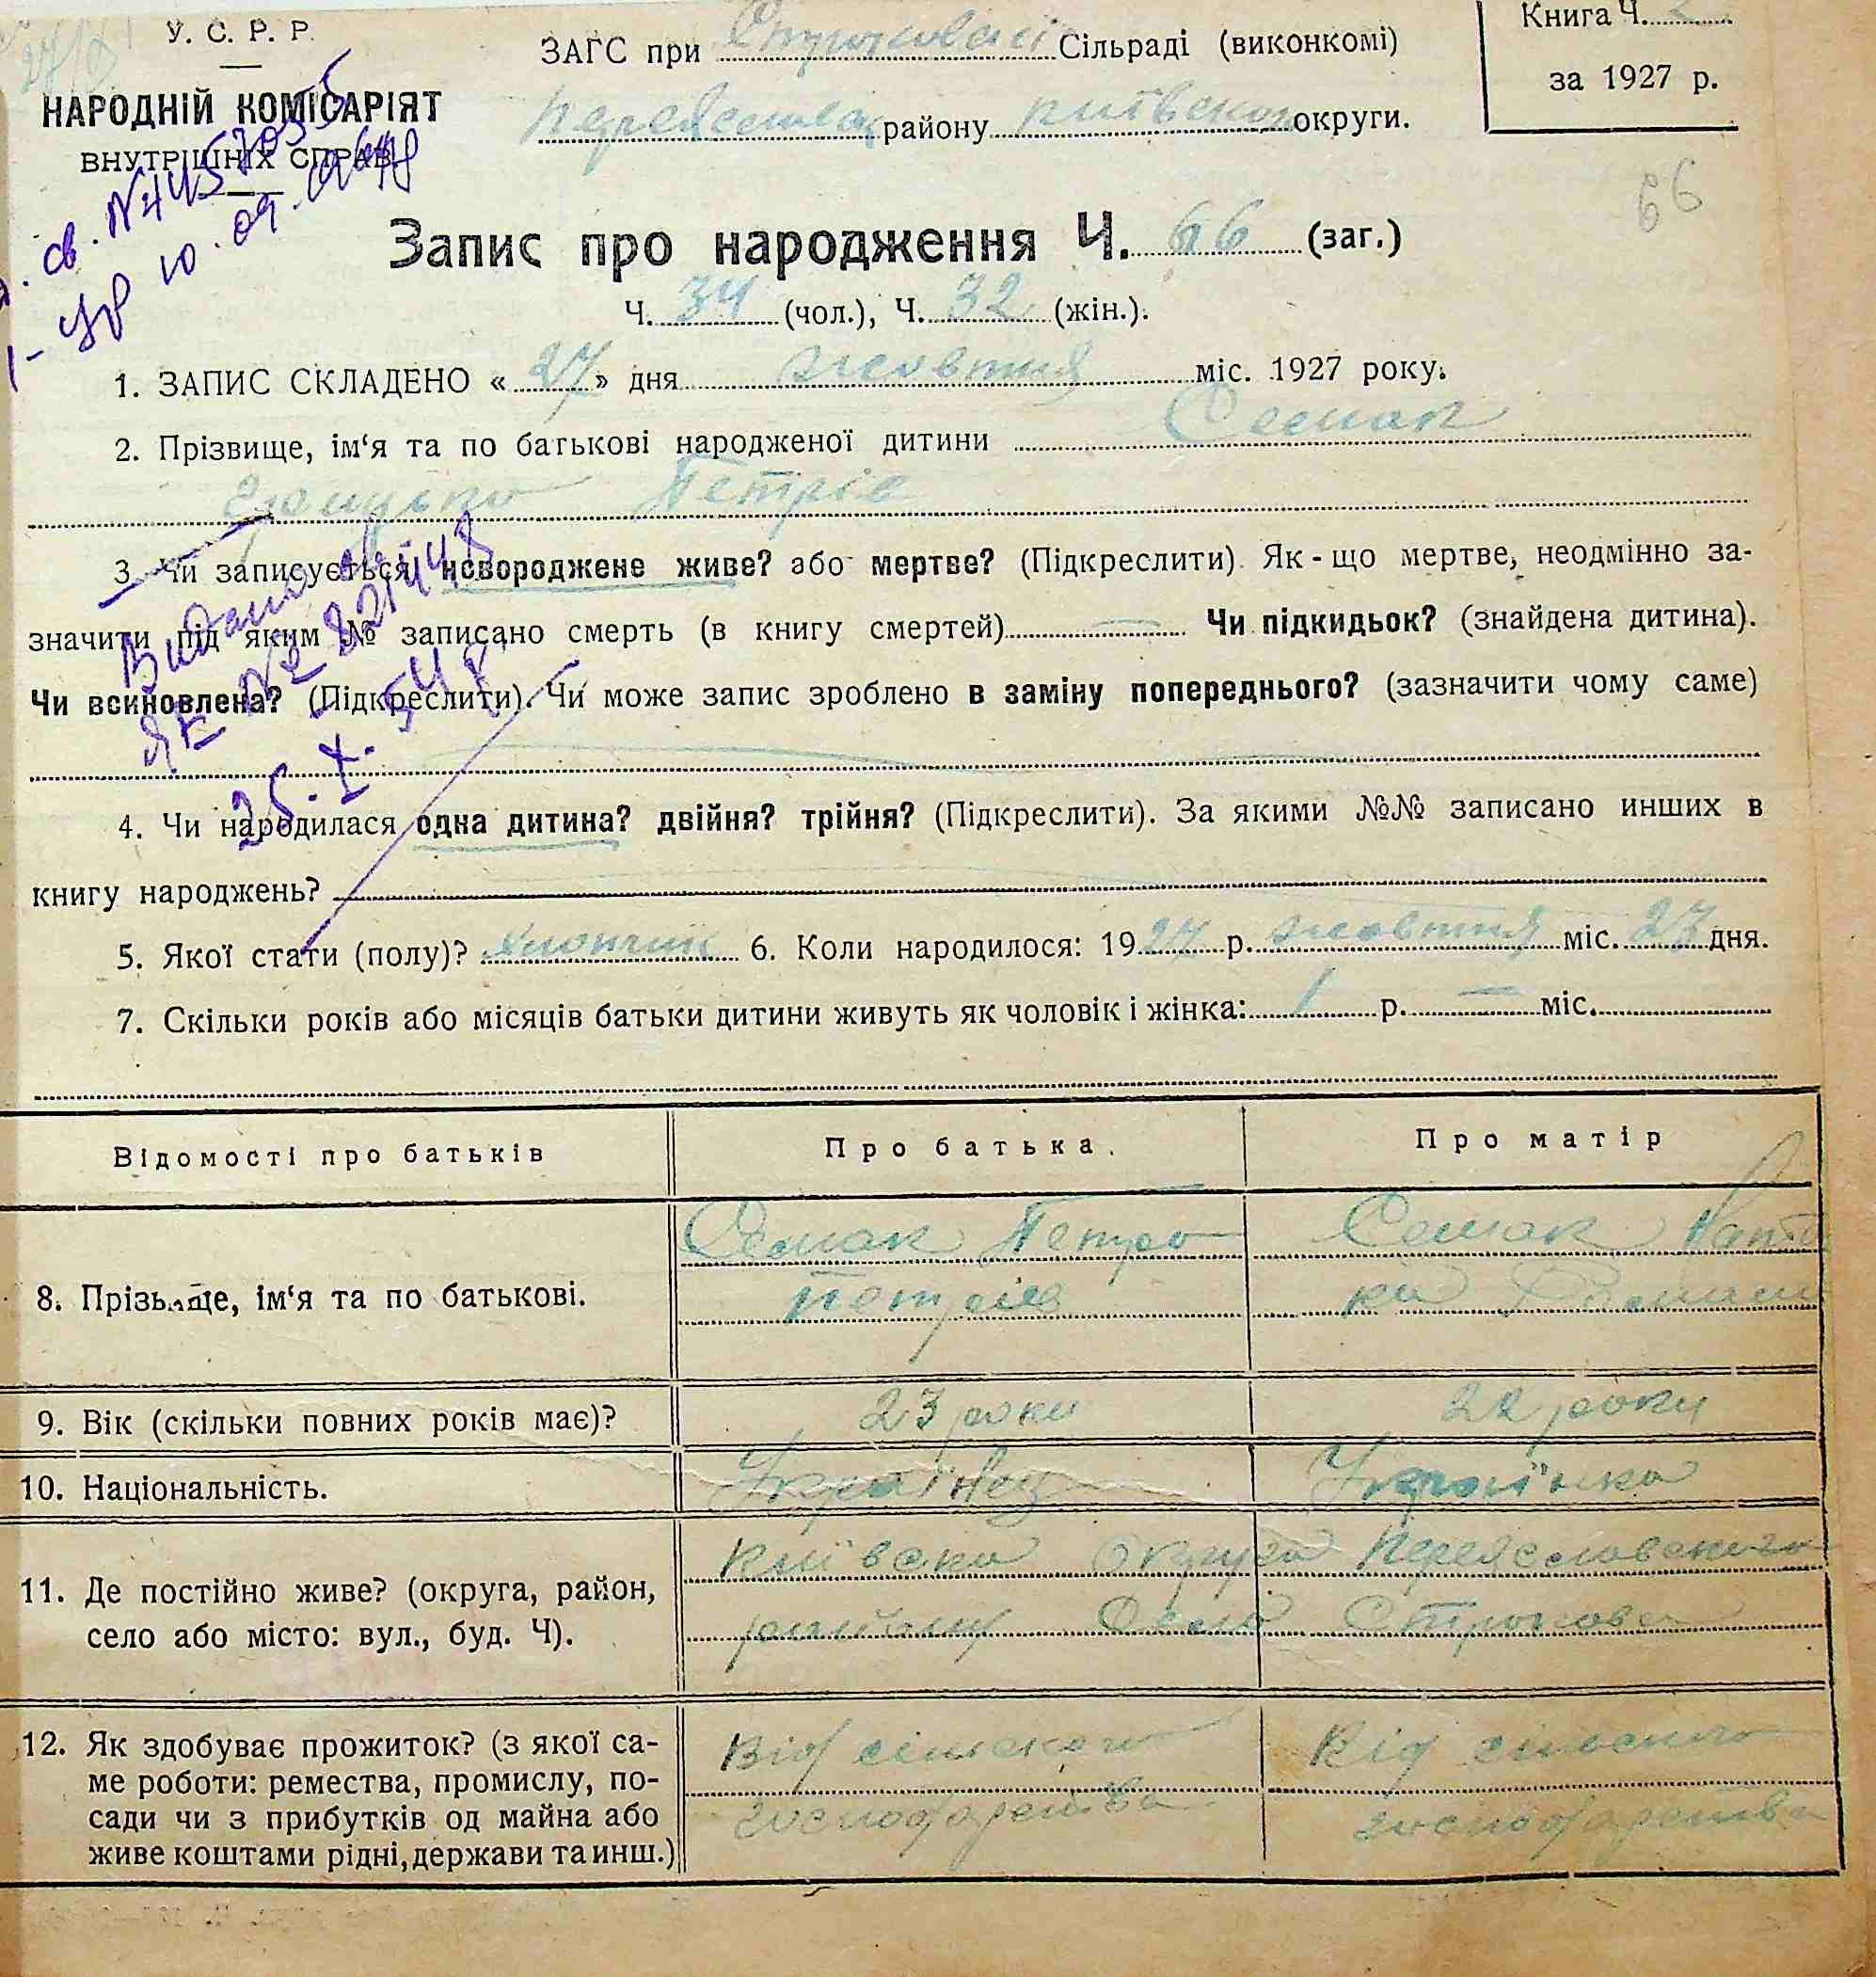 У. С. Р. Р.
НАРОДНІЙ КОМІСАРІЯТ
ВНУТРІШНІХ СПРАВ
ЗАГС при Строковській Сільраді (виконкомі)
району округи.
Книга Ч.
за 1927 р.
66
Запис про народження Ч. 66 (заг.)
Ч. 34 (чол.), Ч. 32 (жін.).
1. ЗАПИС СКЛАДЕНО « 27 » дня жовтня міс. 1927 року.
2. Прізвище, ім‘я та по батькові народженої дитини Семак
Грицько Петрів
3. Чи записується новороджене живе? або мертве? (Підкреслити). Як-що мертве, неодмінно за-
значити під яким № записано смерть (в книгу смертей) — Чи підкидьок? (знайдена дитина).
Чи всиновлена? (Підкреслити). Чи може запис зроблено в заміну попереднього? (зазначити чому саме)
Видано
ЯЕ №
25.X.54
4. Чи народилася одна дитина? двійня? трійня? (Підкреслити). За якими №№ записано инших в
книгу народжень?
5. Якої стати (полу)? хлопчик 6. Коли народилося: 1927 р. жовтня міс. 27 дня.
7. Скільки років або місяців батьки дитини живуть як чоловік і жінка: 1 р. — міс.
Відомості про батьків Про батька. Про матір
8. Прізвище, ім‘я та по батькові.
Семак Петро
Петрів
Семак
9. Вік (скільки повних років має)? 23 роки 22 роки
10. Національність. Українец Українка
11. Де постійно живе? (округа, район,
село або місто: вул., буд. Ч).
Київска округа Переяславского
району Село Строкова
12. Як здобуває прожиток? (з якої са-
ме роботи: ремества, промислу, по-
сади чи з прибутків од майна або
живе коштами рідні, держави та инш.)
Від сільского
господарства
Від сільского
господарства